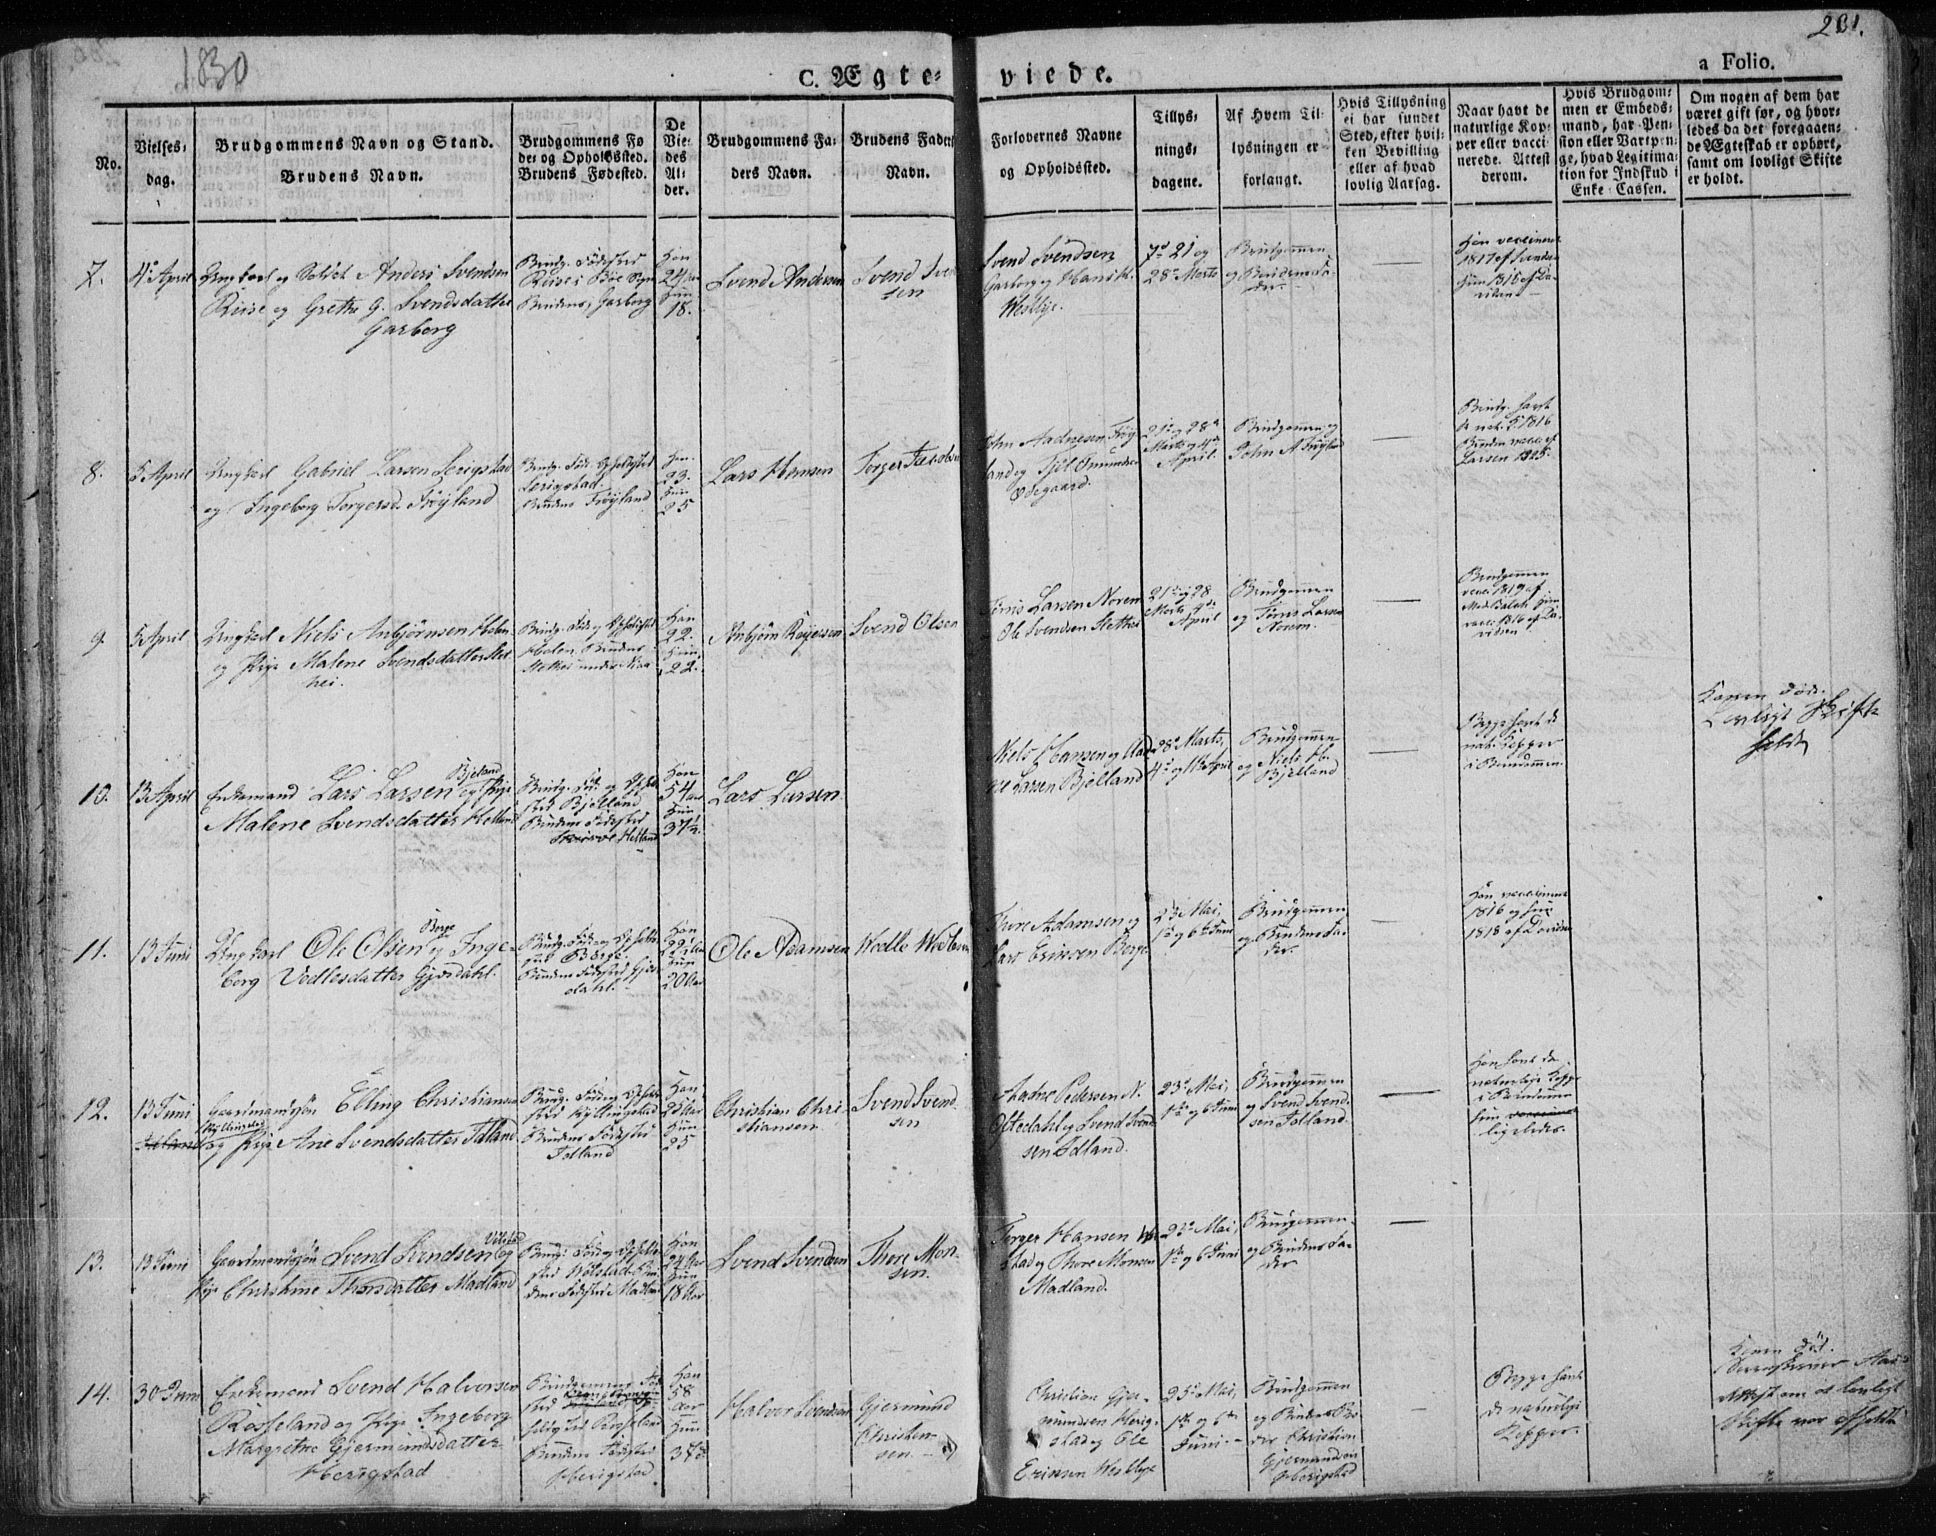 1830
201.
C. Ægte-
viede.
a Folio.
No.
Vielses-
dag.
Brudgommens Navn og Stand.
Brudens Navn.
Brudgommens Fø
de- og Opholdssted.
Brudens Fødested.
De
Vie-
des
Al-
der.
Brudgommens Fa-
ders Navn.
Brudens Faders
Navn.
Forlovernes Navne
og Opholdsted.
Tillys-
nings-
dagene.
Af Hvem Til-
lysningen er
forlangt.
Hvis Tillysning
ei har fundet
Sted, efter hvil-
ken Bevilling
eller af hvad
lovlig Aarsag.
Naar havt de
naturlige Kop-
per eller vacci-
nerede. Attest
derom.
Hvis Brudgom-
men er Embeds-
mand, har Pen-
sion eller Vartpen-
ge, hvad Legitima-
tion for Indskud i
Enke-Cassen.
Om nogen af dem har
været gift før, og hvor-
ledes da det foregaaen-
de Ægteskab er ophørt,
samt om lovligt Skifte
er holdt.
7.
4de April
Ungkarl og Soldat Anders Svendsen
Riise og Grethe G. Svendsdatter
Garborg
Brudg. Fødested
Riise i Boe Sogn
Brudens, Garborg
Han
24 Aar
Hun
18.
Svend Andersen
Svend Svend
sen
Svend Svendsen
Garborg og Hans H.
Westlye.
7de 21 og
28de Marts
Brudgommen
og Brudens Fa-
der.
Han vaccineret
1817 af
hun 1816 af Da-
vidsen
8.
5 April
Ungkarl Gabriel Larsen Lerigstad
og Ingeborg Torgersd. Frøyland
Brudg. Føde Opholdsted
Lerigstad.
Brudens Frøyland
Han
23.
Hun
25
Lars Hansen
Torger Jacobsen
John Aadnesen Frøy-
land og Tjel Omundsen
Ødegaard.
21de og 28de
Marts og 4de
April.
Brudgommen og
John A. Frøyland
Brudg. havt
de nat. K. 1816
Bruden vacc. af
Larsen 1825.
9.
5 April
Ungkarl Niels Anbjørnsen Holen
og Pige Malene Svendsdatter Slet-
hei.
Brudg. Føde og Opholdsted
Holen. Brudens
Slethei
Han
22.
Hun
22.
Anbjørn Reyersen
Svend Olsen
Tønnis Larsen Norem
Ole Svendsen Slethei
21de og 28
Marts 4de
April
Brudgommen
og Tønnis Larsen
Norem.
Brudgommen
vacc. 1819 af
hun
vacc. 1816 af Da-
vidsen
10.
13 April
Enkemand Lars Larsen Bjeland og Pige
Malene Svendsdatter Helland
Brudg. Fød. og Ophold-
sted Bjelland
Brudens Fødested
Helland
Han
54 Aar
Hun
37½.
Lars Larsen.
Niels Hansen og Aad-
ne Larsen Bjelland
28de Marts,
4de og 11te April
Brudgommen
og Niels H.
Bjelland
Begge havt de
nat. Kopper
i Barndommen.
Konen død.
Lovligt Skifte
holdt
11.
13 Juni
Ungkarl Ole Olsen Berge og Inge-
borg Vedlesdatter Gjesdahl.
Brudg. Føde og Opholds-
sted Berge.
Brudens Fødested Gjes-
dahl.
Han
22½ Aar
Hun
20 Aar
Ole Adamsen
Wedle
Thore Adamsen og
Lars Ericsen Berge
23 Mai,
1ste og 6te Juni
Brudgommen
og Brudens Fa-
der.
Han vaccineret
1816 og hun
1818 af Davidsen
12.
13 Juni
Gaardmandssøn Elling Christiansen
Kyllingstad
og Pige Ane Svendsdatter Idland
Brudg. Føde og Opholds-
sted Kyllingstad
Brudens Fødested
Idland
Han
25 Aar
Hun
25
Christian Chri-
stiansen
Svend Svend-
sen
Aadne Pedersen N.
Oftedahl og Svend Svend-
sen Idland.
23de Mai,
1ste og 6 Juni
Brudgommen
og Svend Svend-
sen Idland.
Han havt de
naturlige Kopper
i Barndommen
hun vaccineret
ligeledes.
13.
13 Juni
Gaardmandssøn Svend Svendsen Vølstad og
Pige Christine Thorsdatter Madland
Brudg. Føde og Opholds-
sted Wølstad, Bru-
dens Fødested Madland
Han
24 Aar
Hun
18 Aar
Svend Svendsen
Thore Mon-
sen.
Torger Hansen Wøl-
stad og Thore Monsen
Madland.
23de Mai,
1ste og 6 Juni
Brudgommen
og Brudens Fa-
der
14.
30 Juni
Enkemand Svend Halvorsen
Røsseland og Pige Ingeborg
Margrethe Gjermundsdatter
Herigstad
Brudgommens Føde-
sted
holdsted Røsseland
Brudens Fødested
Herigstad
Han
58
Aar
Hun
37½
Halvor Svendsen
Gjermund
Christen-
sen
Christian Gjer-
mundsen Herig-
stad og Ole
Ericsen Westlye
23de Mai,
1ste og 6te
Juni
Brudgommen
og Brudens Bro-
der Christian
Gjermundsen
Herigstad
Begge havt
de naturlige
Kopper.
Konen død.
Attest om at lovligt
Skifte var afholdt